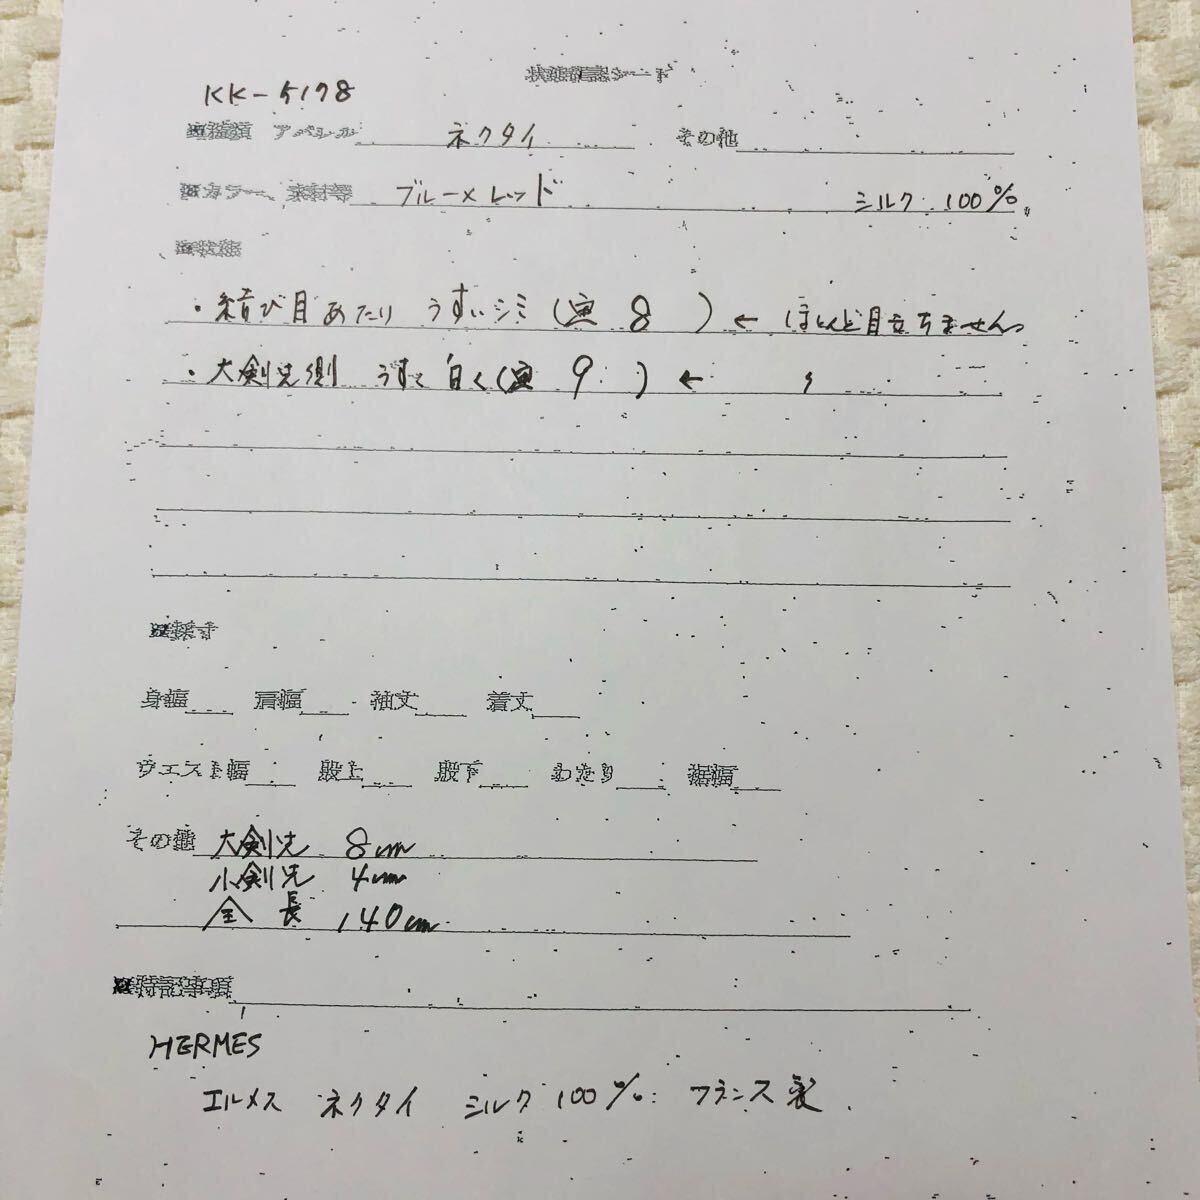 状態確認シート
KK-5178
■種類 アパレル ネクタイ その他
■カラー、素材等 ブルー×レッド シルク 100%
■状態
・結び目あたり うすいシミ(画 8 ) ← ほとんど目立ちません。
・大剣先側 うすく白く(画 9 ) ← 〃
■採寸
身幅 肩幅 袖丈 着丈
ウエスト幅 股上 股下 わたり 裾幅
その他 大剣先 8cm
小剣先 4cm
全長 140cm
■特記事項
HERMES
エルメス ネクタイ シルク 100% フランス製